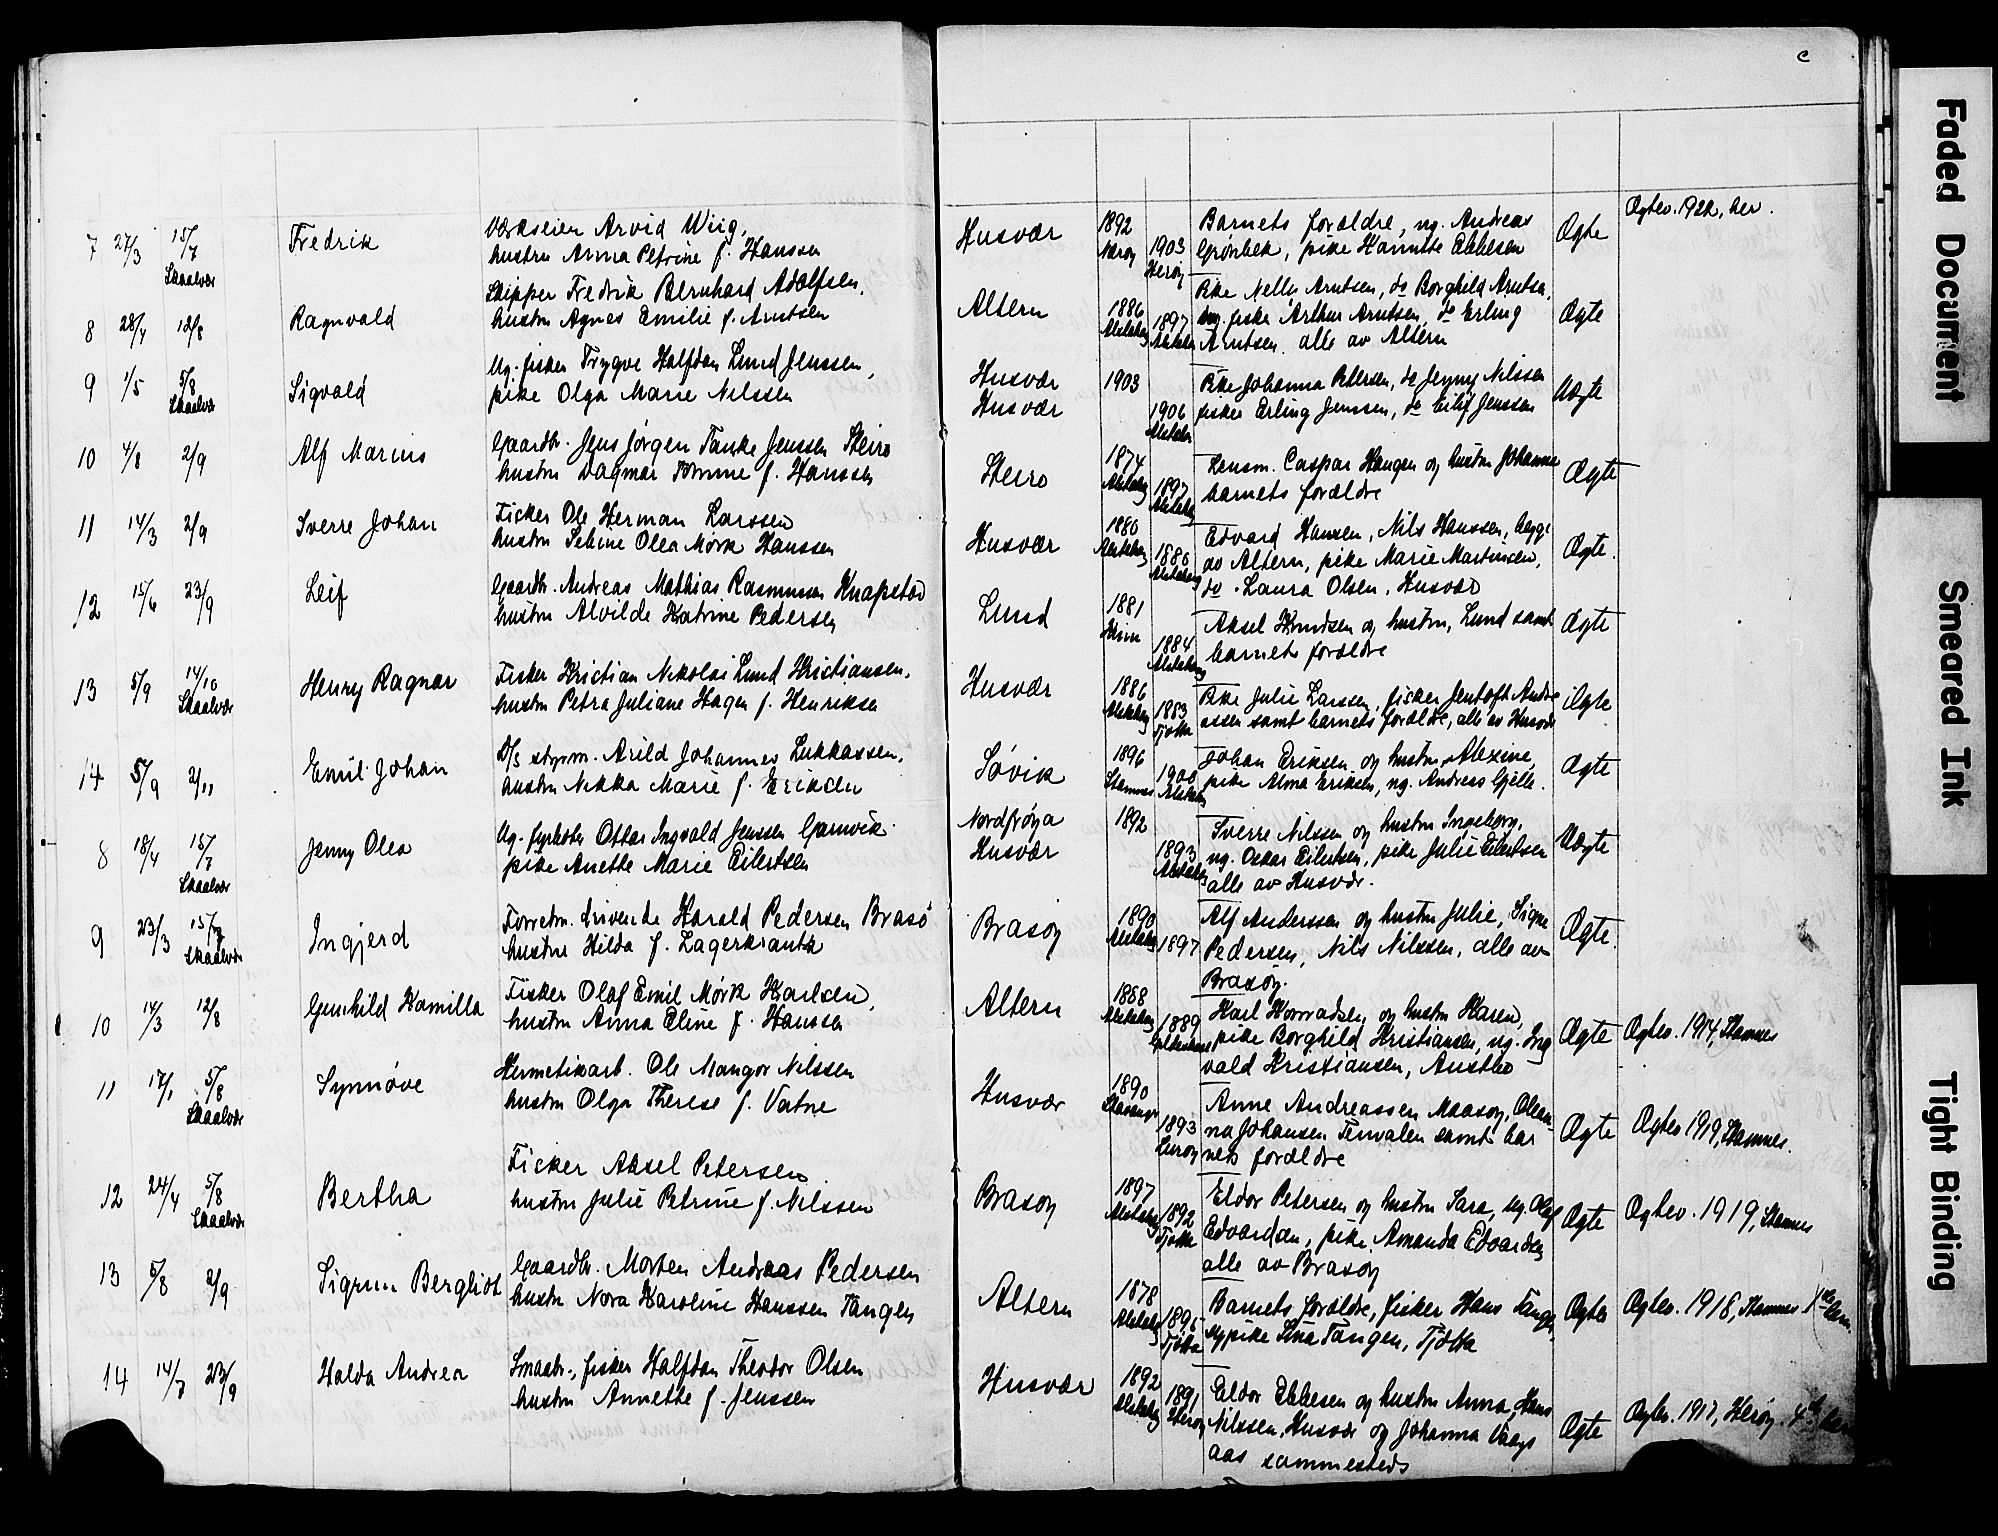 c
7 27/3 15/7 Skaalvær Fredrik Værkseier Arvid Wiig, Husvær 1892 Nærøy 1903 Herøy Barnets forældre, ng. Andreas Ægte Ægtev. 1922, her.
hustru Anna Petrine f. Hanssen Grønbek, pike Hannitte Ebbesen
8 28/4 12/8 Ragnvald Skipper Fredrik Bernhard Adolfsen, Altern 1886 1897 Pike Nelly Arntsen, do Borghild Arntsen, Ægte
hustru Agnes Emilie f. Arntsen fisker Arthur Arntsen, do Erling
Arntsen alle av Altern
9 1/5 5/8 Skaalvær Sigvald Ug. fisker Trygve Halfdan Lund Jenssen, Husvær 1903 Pike Johanna Petersen, do Jenny Nilssen Uægte
pike Olga Marie Nilssen Husvær 1906 fisker Erling Jenssen, do Eilif Jenssen
10 4/8 2/9 Alf Marius Gaardbr. Jens Jørgen Tanke Jenssen Steiro Steiro 1874 1897 Lensm. Caspar Haugen og hustru Johanne Ægte
hustru Dagmar f. Hanssen barnets forældre
11 14/3 2/9 Sverre Johan Fisker Ole Herman Larssen Husvær 1886 Edvard Hanssen, Nils Hanssen, begge Ægte.
hustru Sebine Olea Mørk Hanssen av Altern, pike Marie Martinsen,
do. Laura Olsen, Husvær
12 15/6 23/9 Leif Gaardbr. Andreas Mathias Rasmussen Knapstad Lund 1881 1884 Aksel Knudsen og hustru, Lund samt Ægte
hustru Alvilde Katrine Pedersen barnets forældre
13 5/9 14/10 Skaalvær Henry Ragnar Fisker Kristian Nikolai Lund Kristiansen, Husvær 1886 1883 Tjøtta Pike Julie Larssen, fisker Jentoft Andre Ægte
hustru Petra Juliane Hagen f. Henriksen assen samt barnets forældre, alle av Husvær
14 5/9 2/11 Emil Johan D/s styrm. Arild Johannes Lukkassen, Søvik 1896 Stamnes 1900 Johan Eriksen og hustru Alexine, Ægte
hustru Nikka Marie f. Eriksen pike Alma Eriksen, ng. Andreas Gjelle.
8 18/4 15/7 Skaalvær Jenny Olea Ug. fyrbøter Ottar Ingvald Jenssen Gamvik Nordfrøya 1892 Sverre Nilssen og hustru Ingeborg, Uægte
pike Anette Marie Eilertsen Husvær 1893 ng. Oskar Eilertsen, pike Julie Eilertsen
alle av Husvær.
9 23/3 15/7 Skaalvær Ingjerd Forretn. drivende Harald Pedersen Brasø Brasøy 1890 1897 Alf Anderssen og hustru Julie, Signe Ægte.
hustru Hilda f. Lagerkrantz Pedersen, Nils Nilssen, alle av
Brasøy.
10 14/3 12/8 Gunhild Kamilla Fisker Olaf Emil Mørk Karlsen, Altern 1888 1889 Karl Konradsen og hustru Karen, Ægte Ægtev. 1914, Stamnes
hustru Anna Eline f. Hanssen pike Borghild Kristiansen, ng. Ing
vald Kristiansen, Austbø
11 17/1 5/8 Skaalvær Synnøve Hermetikarb. Ole Mangor Nilssen Husvær 1890 Stavanger 1893 Lurøy Anne Andreassen Maasøy, Olean- Ægte Ægtev 1919, Stamnes.
hustru Olga Therese f. Vatne na Johansen Tenvalen samt bar
nets forældre
12 24/4 5/8 Skaalvær Bertha Fisker Aksel Petersen Brasøy 1897 1892 Tjøtta Eldor Petersen og hustru Sara, ug. Olaf Ægte Ægtev. 1919, Stamnes
hustru Julie Petrine f. Nilssen Edvardsen, pike Amanda Edvardsen
alle av Brasøy
13 5/8 2/9 Sigrun Bergliot Gaardbr. Morten Andreas Pedersen Altern 1878 1895 Tjøtta Barnets forældre, fisker Hans Tangen, Ægte Ægtev. 1918, Stamnes
hustru Nora Karoline Hanssen Tangen pike Sina Tangen, Tjøtta
14 14/7 23/9 Halda Andrea Smaabr., fisker Halfdan Theodor Olsen Husvær 1892 1891 Herøy Eldor Ebbesen og hustru Anna, Hans Ægte Ægtev. 1917, Herøy.
hustru Annette f. Jenssen Nilssen, Husvær og Johanna Vaags
aas sammesteds
Faded Document
Smeared Ink
Tight Binding